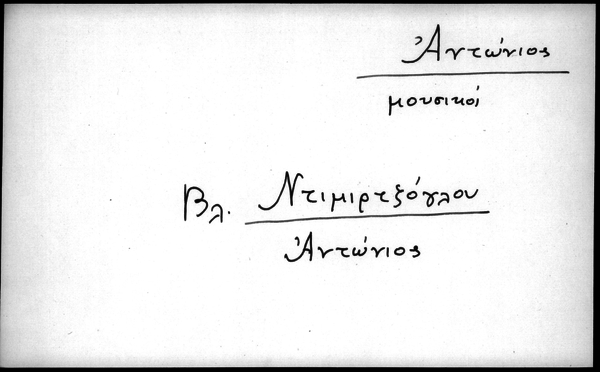 Ἀντώνιος
μουσικοί
Βλ. Ντιμιρτζόγλου
Ἀντώνιος